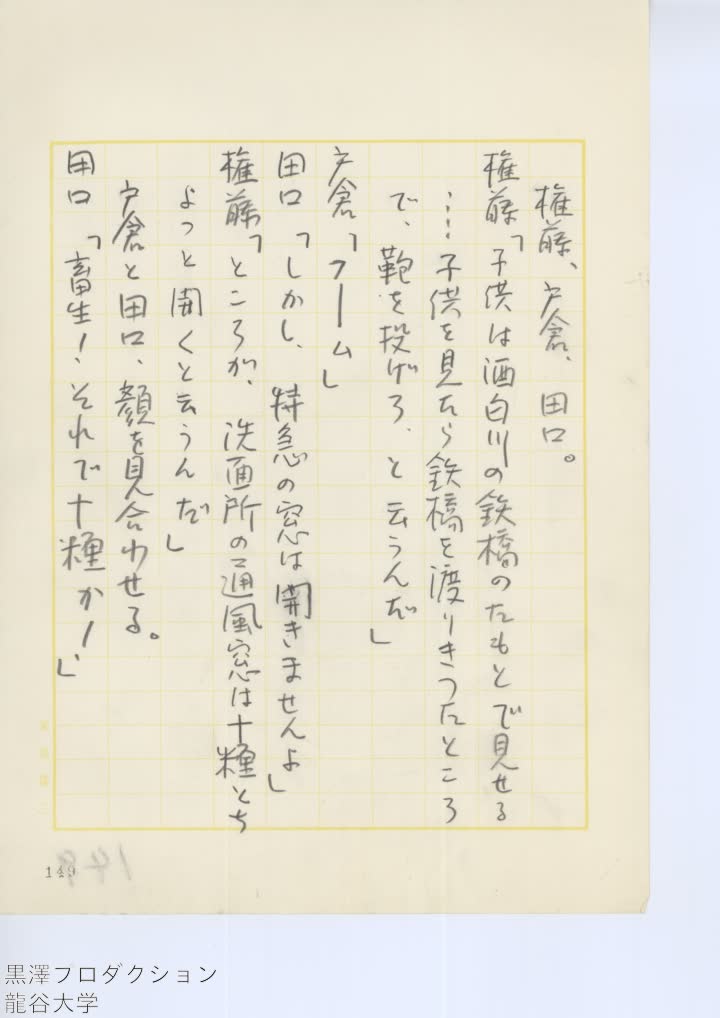 権藤、戸倉、田口。
権藤「子供は酒匂川の鉄橋のたもとで見せる
…子供を見たら鉄橋を渡りきつたところ
で、鞄を投げろ、と云うんだ」
戸倉「フーム」
田口「しかし、特急の窓は開きませんよ」
権藤「ところが、洗面所の通風窓は十糎とち
よつと開くと云うんだ」
戸倉と田口、顔を見合わせる。
田口「畜生！、それで十糎か！」
149
黒澤プロダクション
龍谷大学